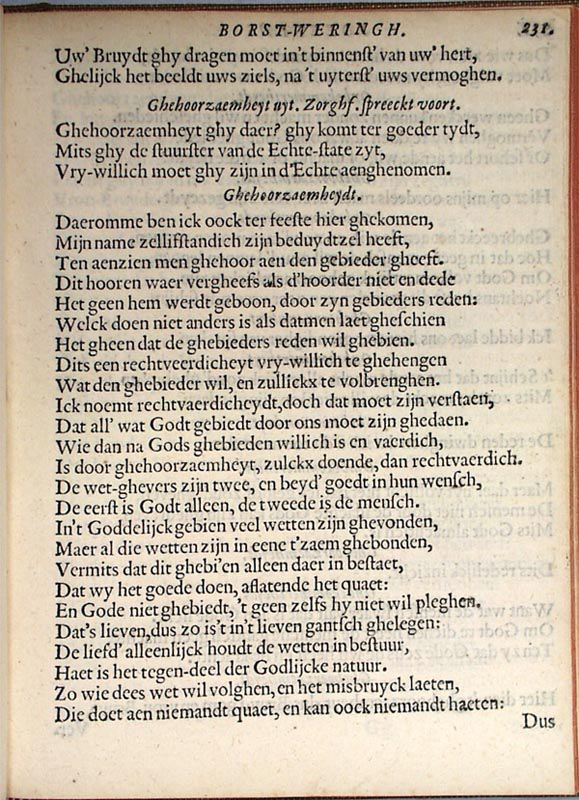 BORST-WERINGH. 231.
Uw' Bruydt ghy dragen moet in't binnenst' van uw' hert,
Ghelijck het beeldt uws ziels, na 't uyterst' uws vermoghen.
Ghehoorzaemheyt uyt. Zorghf. spreeckt voort.
Ghehoorzaemheyt ghy daer? ghy komt ter goeder tydt,
Mits ghy de stuurster van de Echte-state zyt,
Vry-willich moet ghy zijn in d'Echte aenghenomen.
Ghehoorzaemheydt.
Daeromme ben ick oock ter feeste hier ghekomen,
Mijn name zellifstandich zijn beduydtzel heeft,
Ten aenzien men ghehoor aen den gebieder gheeft.
Dit hooren waer vergheefs als d'hoorder niet en dede
Het geen hem werdt geboon, door zyn gebieders reden:
Welck doen niet anders is als datmen laet gheschien
Het gheen dat de ghebieders reden wil ghebien.
Dits een rechtveerdicheyt vry-willich te ghehengen
Wat den ghebieder wil, en zullickx te volbrenghen.
Ick noemt rechtvaerdicheydt, doch dat moet zijn verstaen,
Dat all' wat Godt gebiedt door ons moet zijn ghedaen.
Wie dan na Gods ghebieden willich is en vaerdich,
Is door ghehoorzaemheyt, zulckx doende, dan rechtvaerdich.
De wet-ghevers zijn twee, en beyd' goedt in hun wensch,
De eerst is Godt alleen, de tweede is de mensch.
In't Goddelijck gebien veel wetten zijn ghevonden,
Maer al die wetten zijn in eene t'zaem ghebonden,
Vermits dat dit ghebi'en alleen daer in bestaet,
Dat wy het goede doen, aflatende het quaet:
En Gode niet ghebiedt, 't geen zelfs hy niet wil pleghen.
Dat's lieven, dus zo is't in't lieven gantsch ghelegen:
De liefd' alleenlijck houdt de wetten in bestuur,
Haet is het tegen-deel der Godlijcke natuur.
Zo wie dees wet wil volghen, en het misbruyck laeten,
Die doet aen niemandt quaet, en kan oock niemandt haeten:
Dus